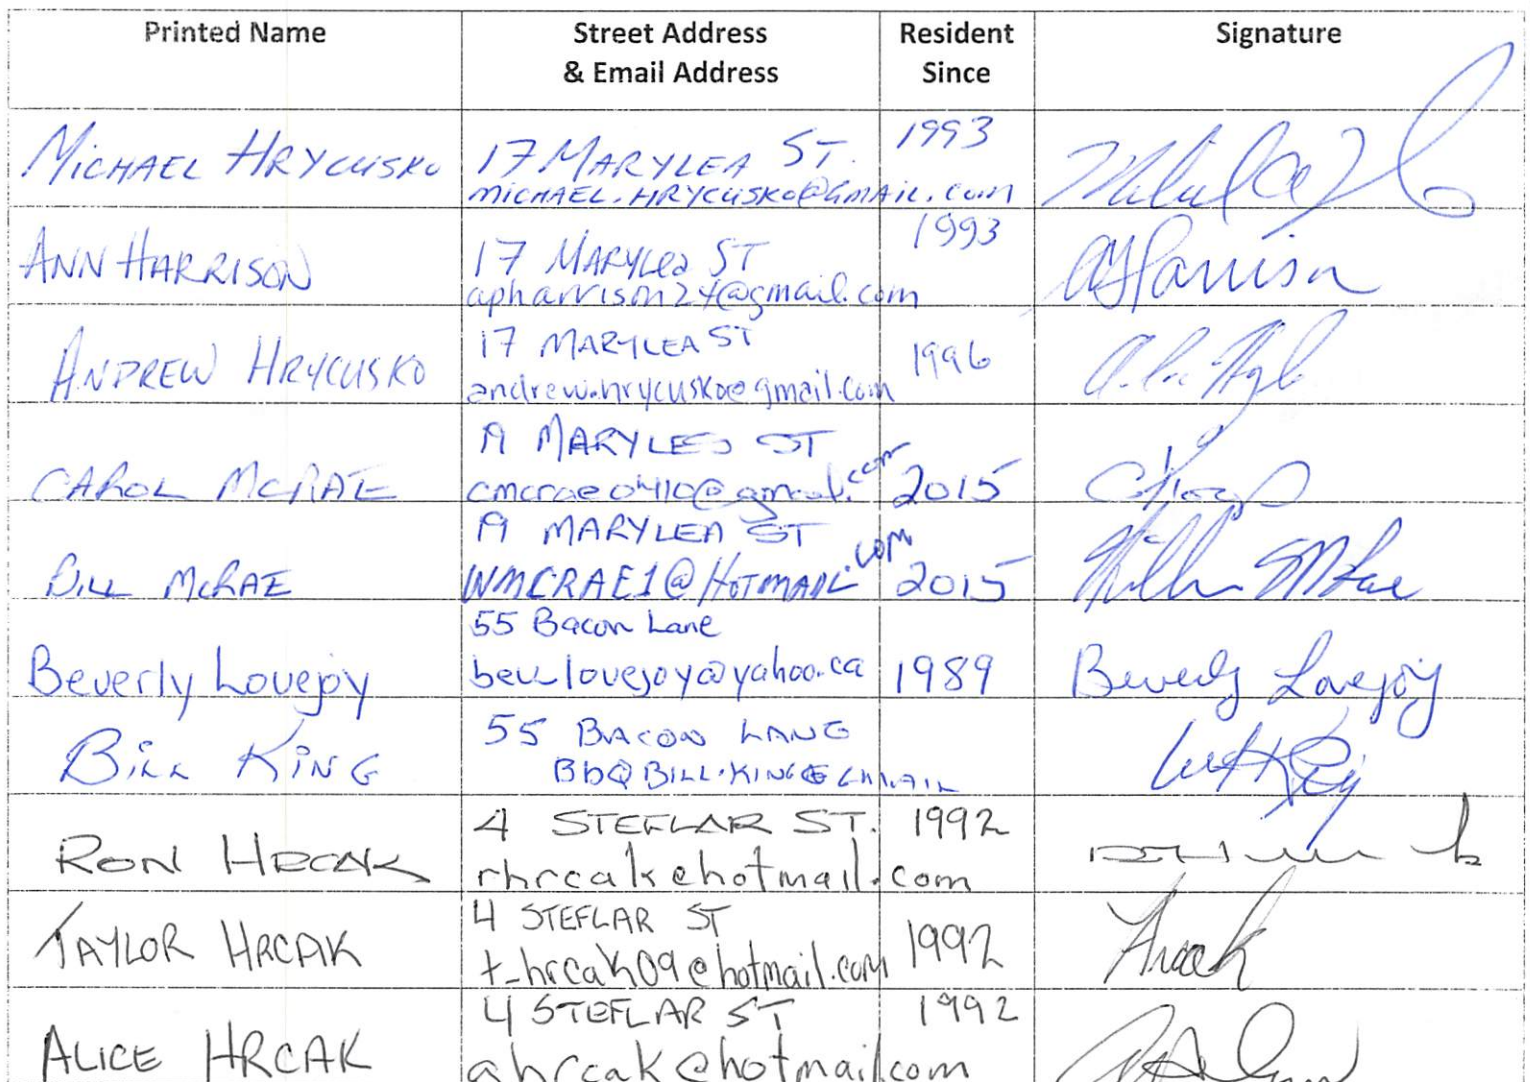 Printed Name
Street Address
& Email Address
Resident
Since
Signature
MICHAEL HRYCUSKO
17 MARYLEA ST.
MICHAEL.HRYCUSKO@GMAIL.com
1993
ANN HARRISON
17 MARYLEA ST
apharrison24@gmail.com
1993
AHarrison
ANDREW HRYCUSKO
17 MARYLEA ST
andrew.hrycusko@gmail.com
1996
CAROL MCRAE
19 MARYLEA ST
cmcrae0410@gmail.com
2015
BILL MCRAE
19 MARYLEA ST
WMCRAE1@HOTMAIL.COM
2015
Beverly Lovejoy
55 Bacon Lane
bev_lovejoy@yahoo.ca
1989
Beverly Lovejoy
BILL KING
55 BACON LANE
BBQBILL.KING@GMAIL
RON HRCAK
4 STEFLAR ST.
rhrcak@hotmail.com
1992
TAYLOR HRCAK
4 STEFLAR ST
t_hrcak09@hotmail.com
1992
Hrcak
ALICE HRCAK
4 STEFLAR ST
ahrcak@hotmail.com
1992